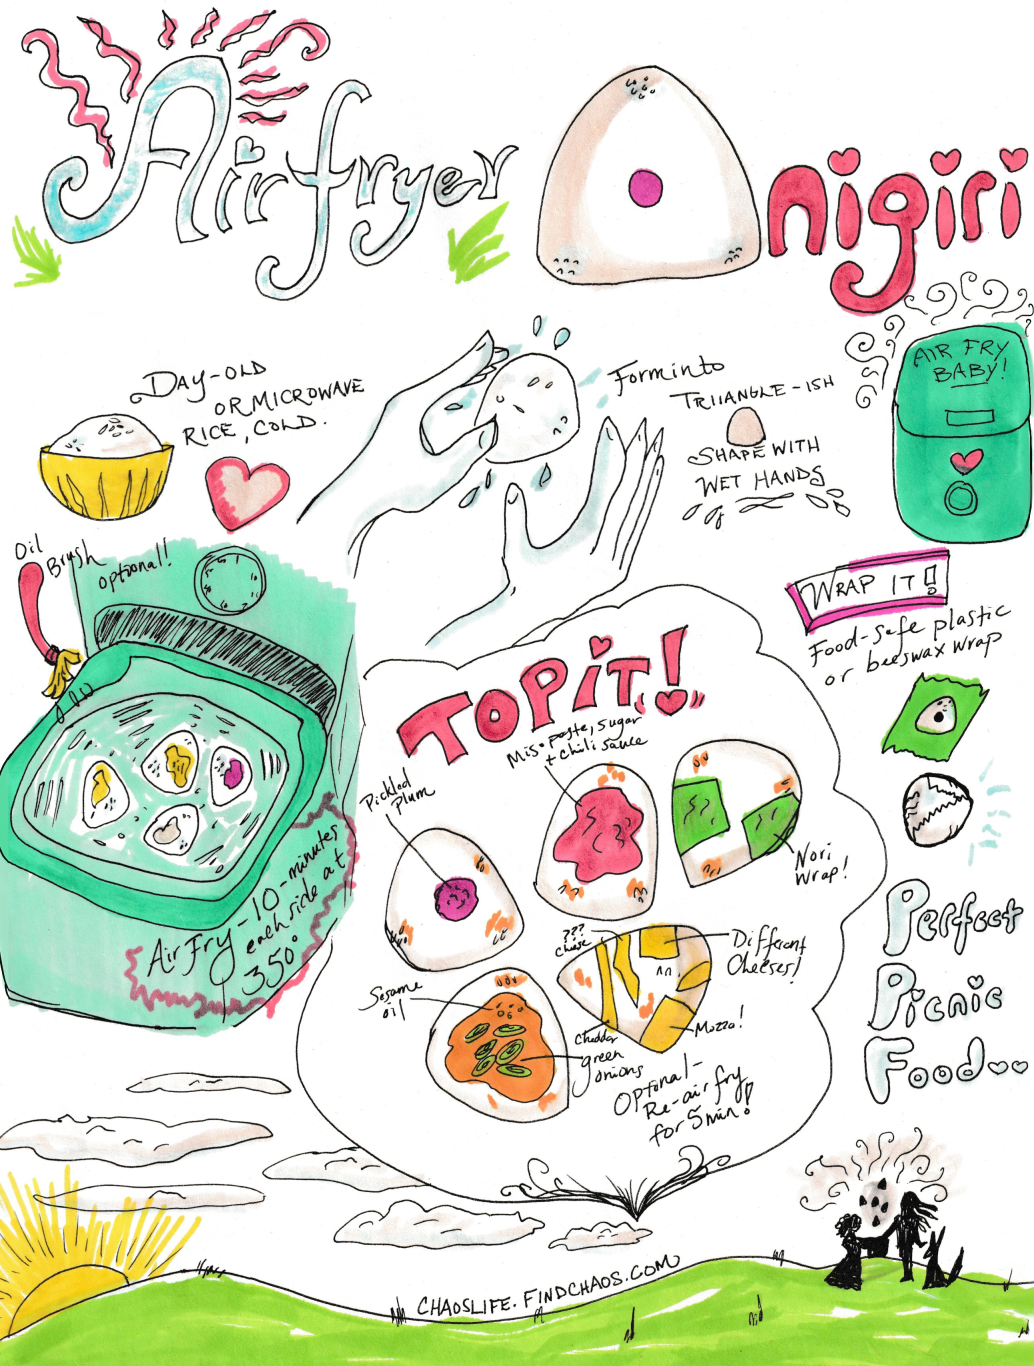 Airfryer Onigiri
Day-old
or microwave
rice, cold.
Form into
Triiangle-ish
shape with
wet hands
Air fry
baby!
Oil
Brush
optional!
Air Fry - 10 - minutes
each side at
350°
Wrap it!
Food-safe plastic
or beeswax wrap
Top it!
Miso paste, sugar
+ chili sauce
Pickled
Plum
Nori
Wrap!
???
cheese
Different
Cheeses!
Sesame
oil
Cheddar
Mozza!
green
onions
Optional-
Re-air fry
for 5 min!
Perfect
Picnic
Food
chaoslife.findchaos.com